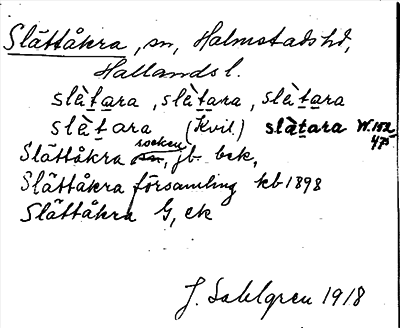 Slättåkra, sn, Halmstads hd,
Hallands l.
slὰt̲ara, slὰt̲ara, slὰt̲ara
slὰt̲ara (Kvil.) slὰt̲ara W. 102
475
Slättåkra socken, jb bek,
Slättåkra församling kb 1898
Slättåkra G, ek
J. Sahlgren 1918